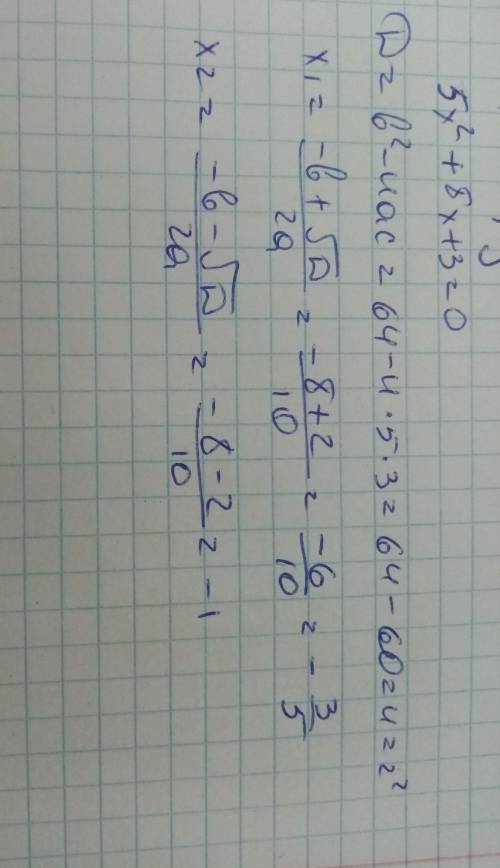 5x² + 8x + 3 = 0
D = b² - 4ac = 64 - 4 · 5 · 3 = 64 - 60 = 4 = 2²
x₁ = (-b + √D) / 2a = (-8 + 2) / 10 = -6 / 10 = - 3 / 5
x₂ = (-b - √D) / 2a = (-8 - 2) / 10 = -1